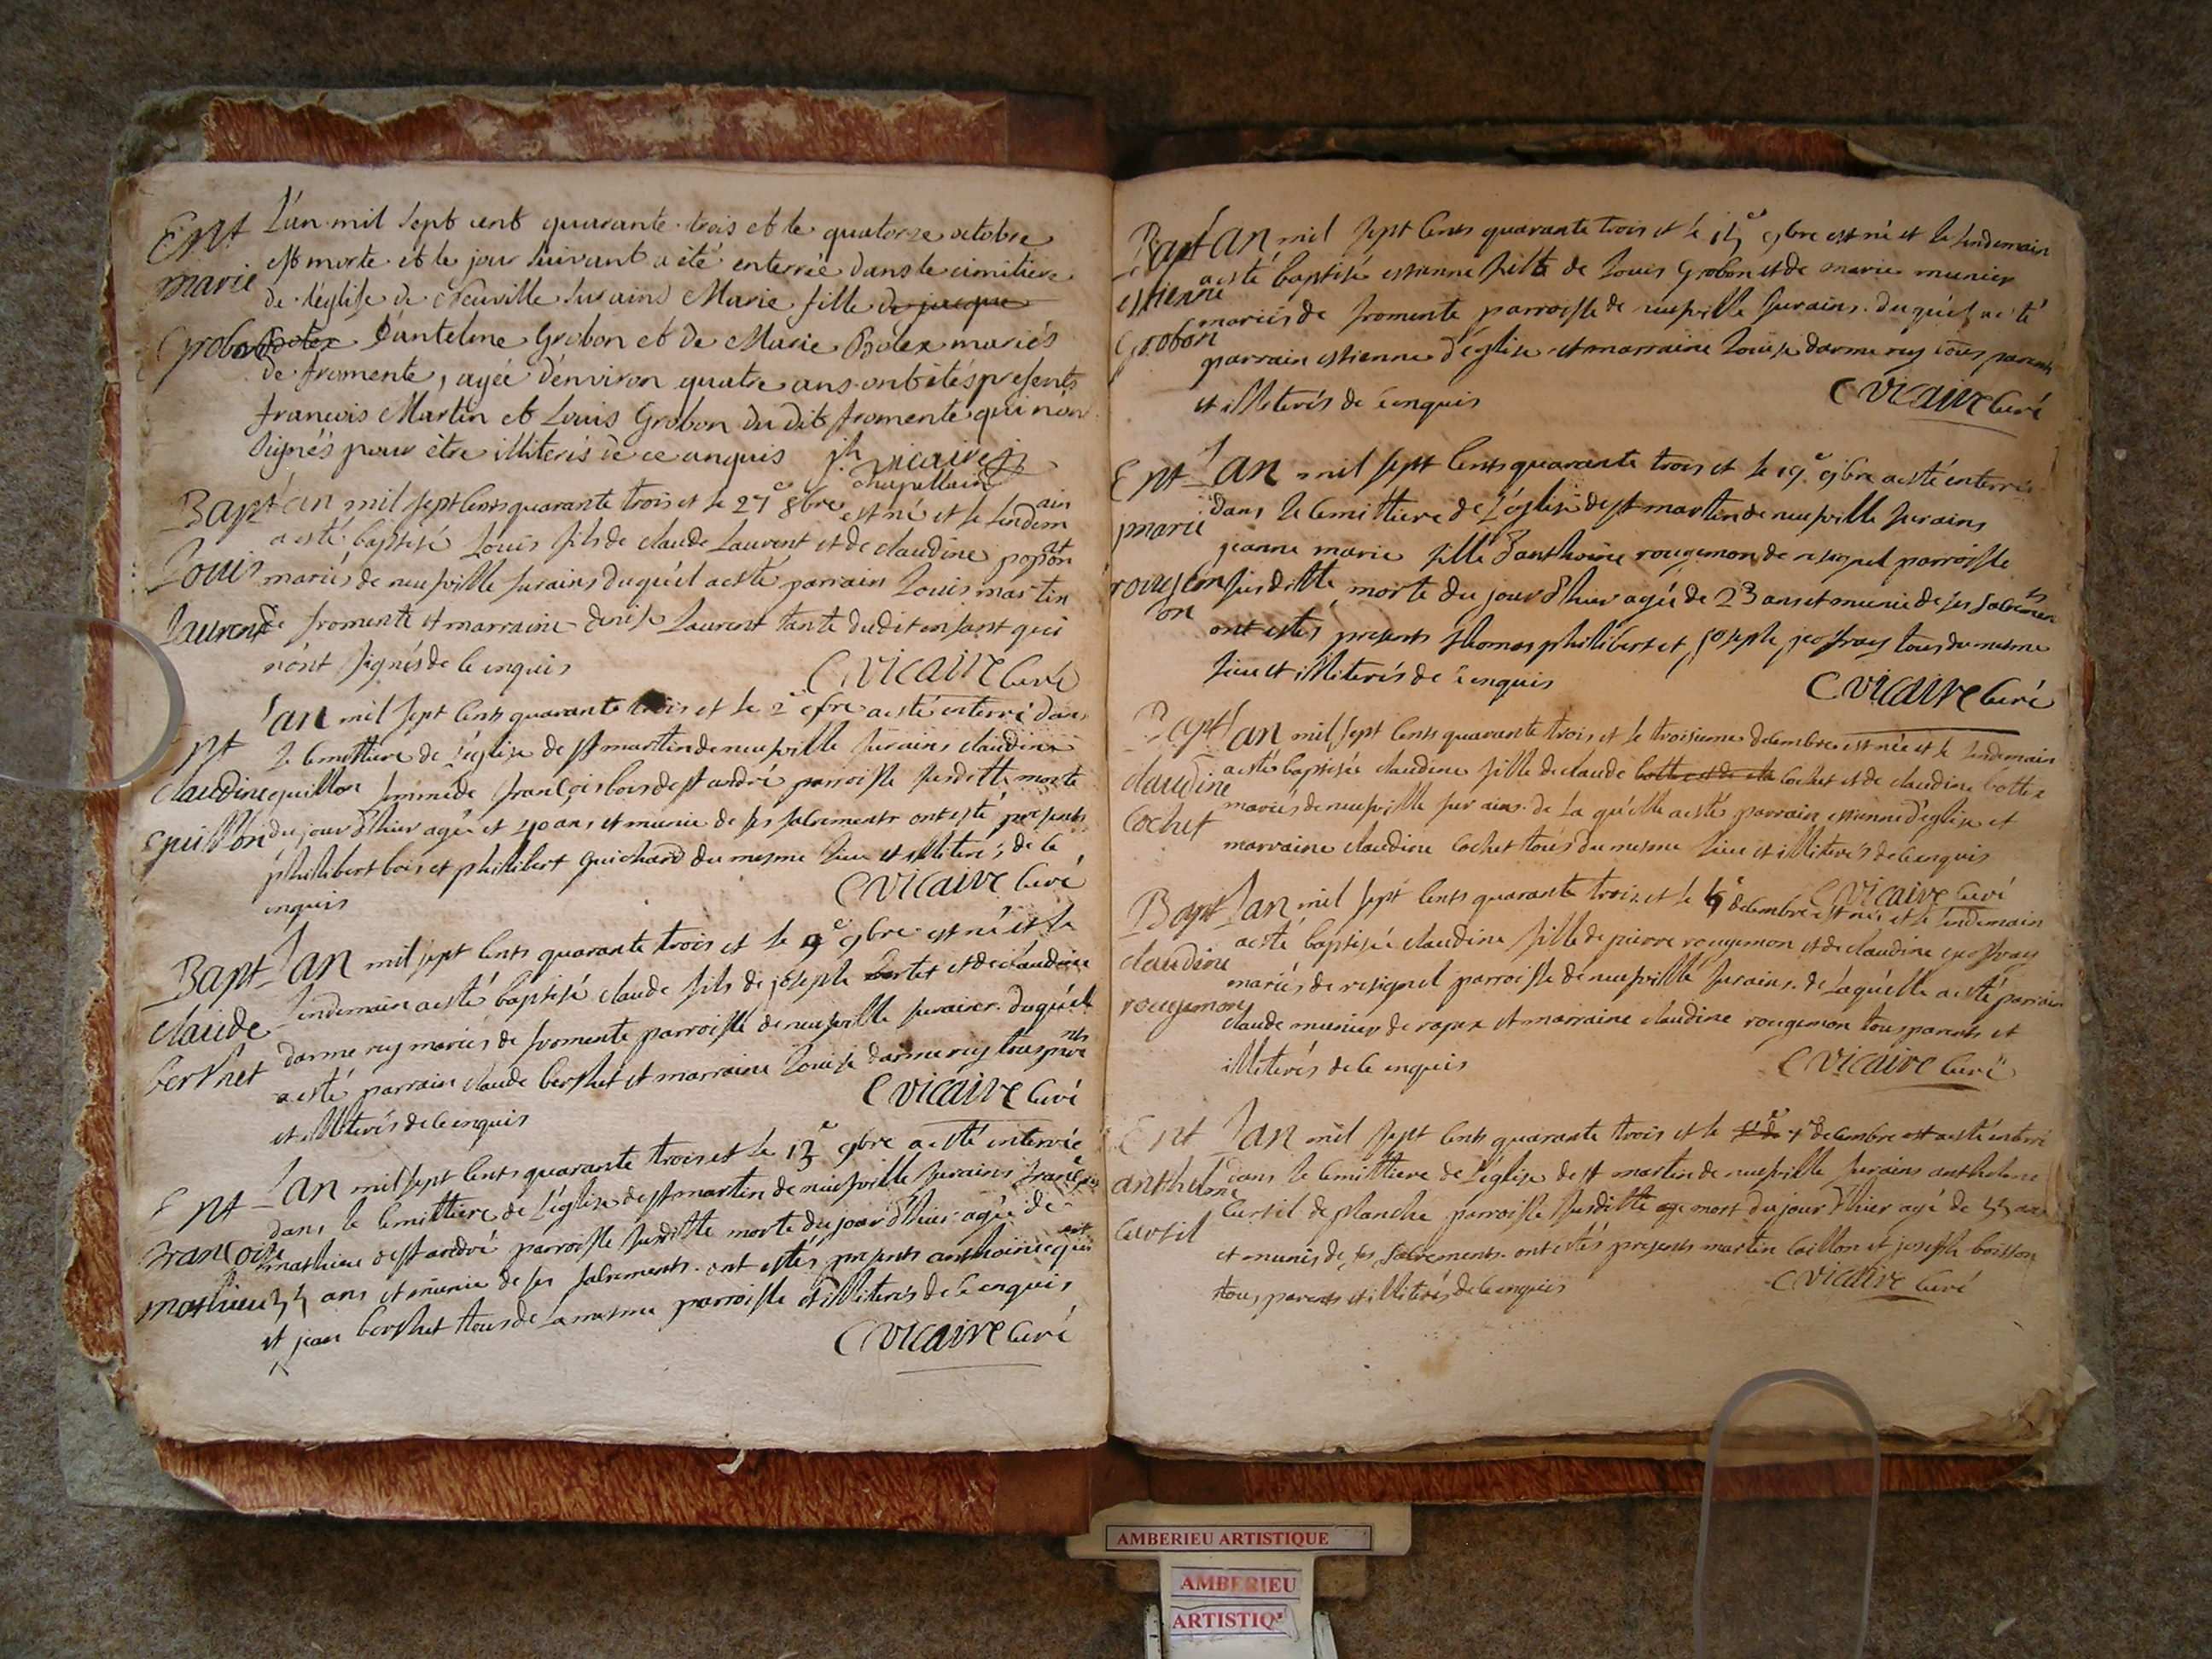 Ent
marie
Grobon
L'an mil sept cent quarante trois et le quatorze octobre
est morte et le jour suivant a été enterrée dans le cimitiere
de l'église de Neuville surains Marie fille de jacque
d'antelme Grobon et de Marie Bolex mariés
de fromente, agée d'environ quatre ans ont étés présents
francois Martin et Louis Grobon du dit fromente qui n'ont
signés pour être illiterés de ce enquis jh vicaire
chapellain
Bapt
Louis
Laurent
l'an mil sept cents quarante trois et le 27e 8bre est né et le lendemain
a esté baptisé Louis fils de claude Laurent et de claudine
mariés de neufville surains duquel a esté parrain Louis martin
de fromente et marraine denise Laurent tante dudit enfant qui
n'ont signés de ce enquis C vicaire curé
Ent
claudine
epuillon
l'an mil sept cents quarante trois et le 2e a esté enterré dans
le cemittiere de l'église de st martin de neufville surains claudine
femme de françois bois de st andré parroisse susditte morte
du jour d'hier agée et 40 ans et munie de ses sacrements ont esté presents
phillibert bois et phillibert guichard du mesme lieu et illiterés de ce
enquis C vicaire curé
Bapt
claude
berthet
l'an mil sept cents quarante trois et le 9e 9bre est né et le
lendemain a esté baptisé claude fils de joseph bertet et de claudine
darmerey mariés de fromente parroisse de neufville surains duquel
a esté parrain claude berthet et marraine Louise darmerey tous
et illiterés de ce enquis C vicaire curé
Ent
francoise
mathieu
l'an mil sept cents quarante trois et le 13e 9bre a esté enterrée
dans le cemittiere de l'église de st martin de neufville surains françoise
mathieu de st andré parroisse susditte morte du jour d'hier agée de
55 ans et munie de ses sacrements ont estés presents anthoine
et jean berthet tous de la mesme parroisse et illiterés de ce enquis
C vicaire curé
Bapt
estienne
Grobon
l'an mil sept cents quarante trois et le 15e 9bre est né et le lendemain
a esté baptisé estienne fils de Louis Grobon et de marie munier
mariés de fromente parroisse de neufville surains duquel a eté
parrain estienne d'église et marraine Louise darmerey tous parents
et illiterés de ce enquis C vicaire curé
Ent
marie
rougemon
l'an mil sept cents quarante trois et le 19e 9bre a esté enterrée
dans le cemittiere de l'église de st martin de neufville surains
jeanne marie fille d'anthoine rougemon de resignel parroisse
susditte morte du jour d'hier agée de 23 ans et munie de ses sacremen
ts
ont estés presents thomas phillibert et joseph jeoffray tous du mesme
lieu et illiterés de ce enquis C vicaire curé
Bapt
claudine
Cochet
l'an mil sept cents quarante trois et le troisieme decembre est née et le lendemain
a esté baptisée claudine fille de claude cochet et de claudine bottex
mariés de neufville surains de la quelle a esté parrain estienne d'église et
marraine claudine cochet tous du mesme lieu et illiterés de ce enquis
C vicaire curé
Bapt
claudine
rougemon
l'an mil sept cents quarante trois et le decembre est née et le lendemain
a esté baptisée claudine fille de pierre rougemon et de claudine geoffray
mariés de resignel parroisse de neufville surains de laquelle a esté parrain
claude munier de rapax et marraine claudine rougemon tous parents et
illiterés de ce enquis C vicaire curé
Ent
anthelme
Cursil
l'an mil sept cents quarante trois et le decembre a esté enterré
dans le cemittiere de l'église de st martin de neufville surains anthelme
Cursil de planche parroisse susditte mort du jour d'hier agé de 55 ans
et munis de ses sacrements ont estés presents martin caillon et joseph boisson
tous parents et illiterés de ce enquis C vicaire curé
AMBERIEU ARTISTIQUE
AMBERIEU
ARTISTIQ